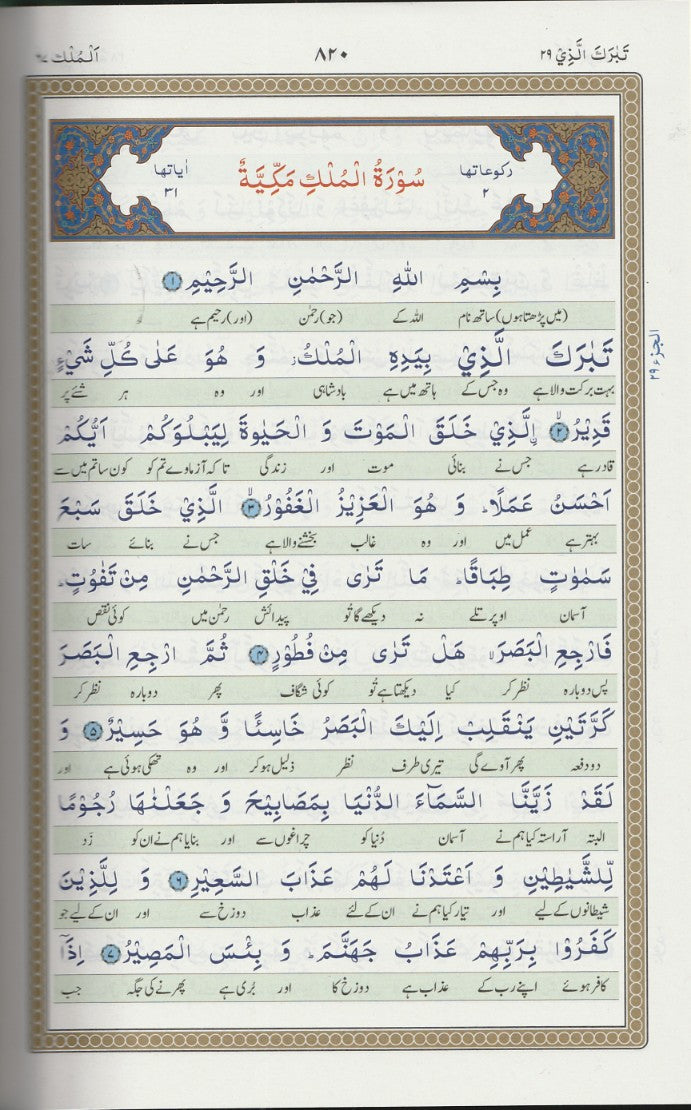 تَبٰرَكَ الَّذِيْ ٢٩
٨٢٠
اَلْمُلْك ٦٧
رکوعاتها
٢
سُوْرَةُ الْمُلْكِ مَكِّيَّةٌ
اٰیاتها
٣١
بِسْمِ اللّٰهِ الرَّحْمٰنِ الرَّحِيْمِ ١
(میں پڑھتا ہوں) ساتھ نام اللہ کے (جو) رحمٰن (اور) رحیم ہے
تَبٰرَكَ الَّذِيْ بِيَدِهِ الْمُلْكُ وَ هُوَ عَلٰى كُلِّ شَيْءٍ
بہت برکت والا ہے وہ جس کے ہاتھ میں ہے بادشاہی اور وہ ہر شئے پر
قَدِيْرُ ٢ الَّذِيْ خَلَقَ الْمَوْتَ وَ الْحَيٰوةَ لِيَبْلُوَكُمْ اَيُّكُمْ
قادر ہے جس نے بنائی موت اور زندگی تا کہ آزماوے تم کو کون سا تم میں سے
اَحْسَنُ عَمَلًا وَ هُوَ الْعَزِيْزُ الْغَفُوْرُ ٣ الَّذِيْ خَلَقَ سَبْعَ
بہتر ہے عمل میں اور وہ غالب بخشنے والا ہے جس نے بنائے سات
سَمٰوٰتٍ طِبَاقًا مَا تَرٰى فِيْ خَلْقِ الرَّحْمٰنِ مِنْ تَفٰوُتٍ
آسمان اوپر تلے نہ دیکھے گا تو پیدائش رحمٰن میں کوئی نقص
فَارْجِعِ الْبَصَرَ هَلْ تَرٰى مِنْ فُطُوْرٍ ٤ ثُمَّ ارْجِعِ الْبَصَرَ
پس دوبارہ نظر کر کیا دیکھتا ہے تو کوئی شگاف پھر دوبارہ نظر کر
كَرَّتَيْنِ يَنْقَلِبْ اِلَيْكَ الْبَصَرُ خَاسِئًا وَّ هُوَ حَسِيْرٌ ٥ وَ
دو دفعہ پھر آوے گی تیری طرف نظر ذلیل ہو کر اور وہ تھکی ہوئی ہے اور
لَقَدْ زَيَّنَّا السَّمَآءَ الدُّنْيَا بِمَصَابِيْحَ وَ جَعَلْنٰهَا رُجُوْمًا
البتہ آراستہ کیا ہم نے آسمان دُنیا کو چراغوں سے اور بنایا ہم نے ان کو زَد
لِّلشَّيٰطِيْنِ وَ اَعْتَدْنَا لَهُمْ عَذَابَ السَّعِيْرِ ٦ وَ لِلَّذِيْنَ
شیطانوں کے لیے اور تیار کیا ہم نے ان کے لئے عذاب دوزخ سے اور ان کے لیے جو
كَفَرُوْا بِرَبِّهِمْ عَذَابُ جَهَنَّمَ وَ بِئْسَ الْمَصِيْرُ ٧ اِذَآ
کافر ہوئے اپنے رب کے عذاب ہے دوزخ کا اور بُری ہے پھرنے کی جگہ جب
الجزء ٢٩